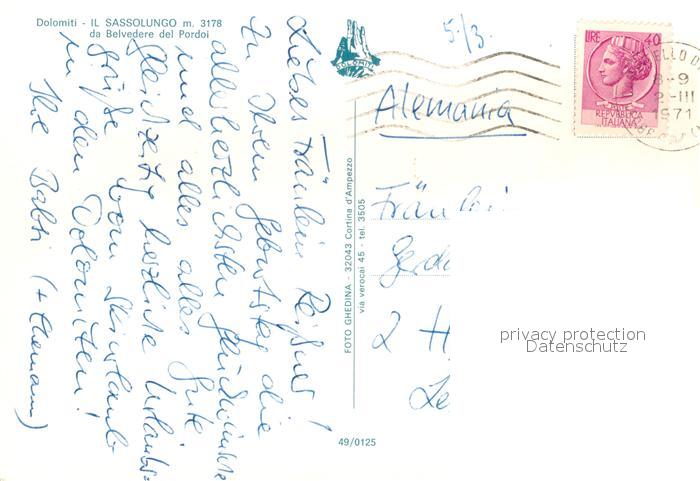 Dolomiti - IL SASSOLUNGO m. 3178
da Belvedere del Pordoi
Liebes Fräulein Reißner!
Zu Ihrem Geburtstag die
allerherzlichsten Glückwünsche
und alles alles Gute
gleichzeitig herzliche Urlaubs-
grüße vom Skiurlaub
in den Dolomiten!
Ihre Babsi (+ Ehemann)
DOLOMITI
FOTO GHEDINA - 32043 Cortina d'Ampezzo
via verocai 45 - tel. 3505
49/0125
5./3.
Alemania
LIRE 40
REPUBBLICA
ITALIANA
2-III
1971
Fräu
Gerda
2 H
Le
privacy protection
Datenschutz